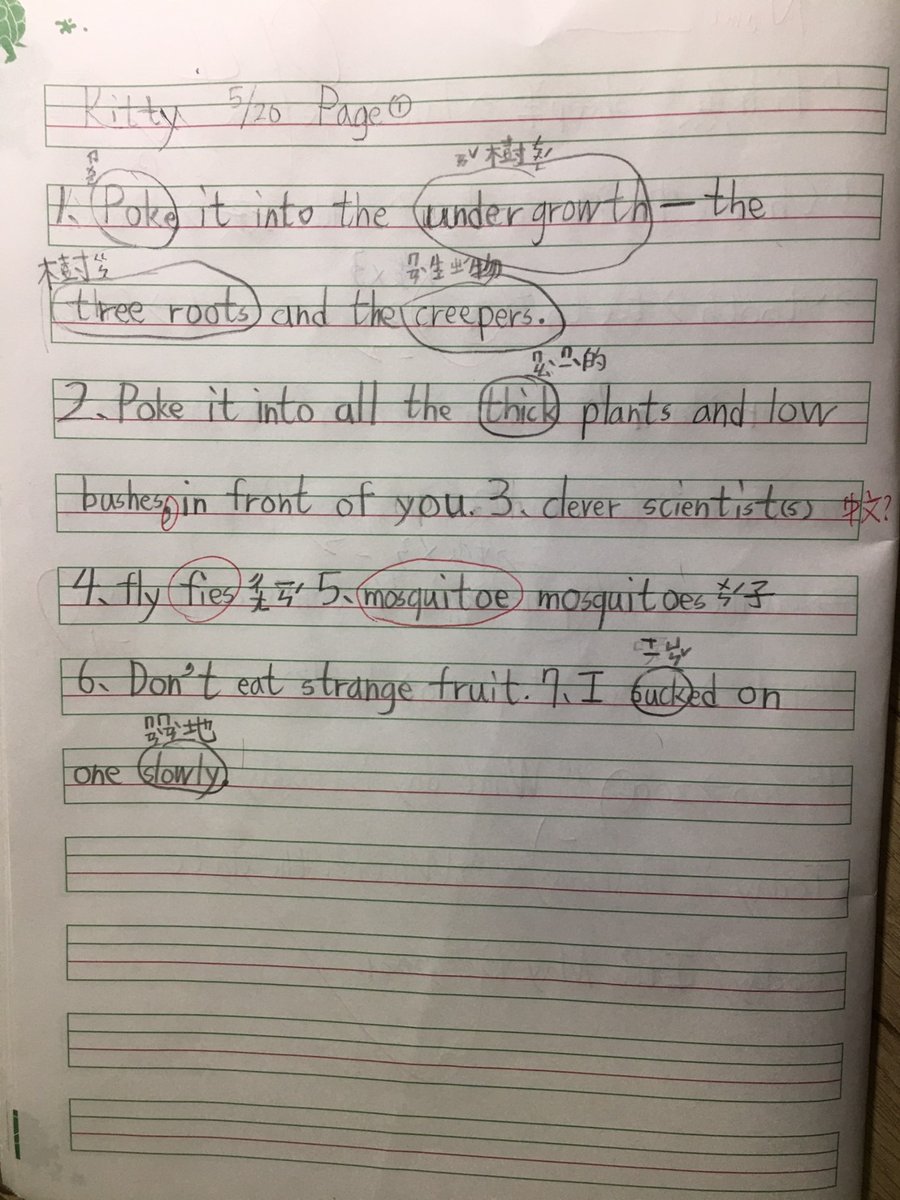 Kitty 5/20 Page①
樹
1、Poke it into the undergrowth — the
樹
three roots and the creepers.
的
2、Poke it into all the thick plants and low
bushes in front of you. 3、clever scientist(s) 中文?
4、fly fies 5、mosquitoe mosquitoes ㄨㄣˊ子
6、Don't eat strange fruit. 7、I sucked on
地
one slowly.